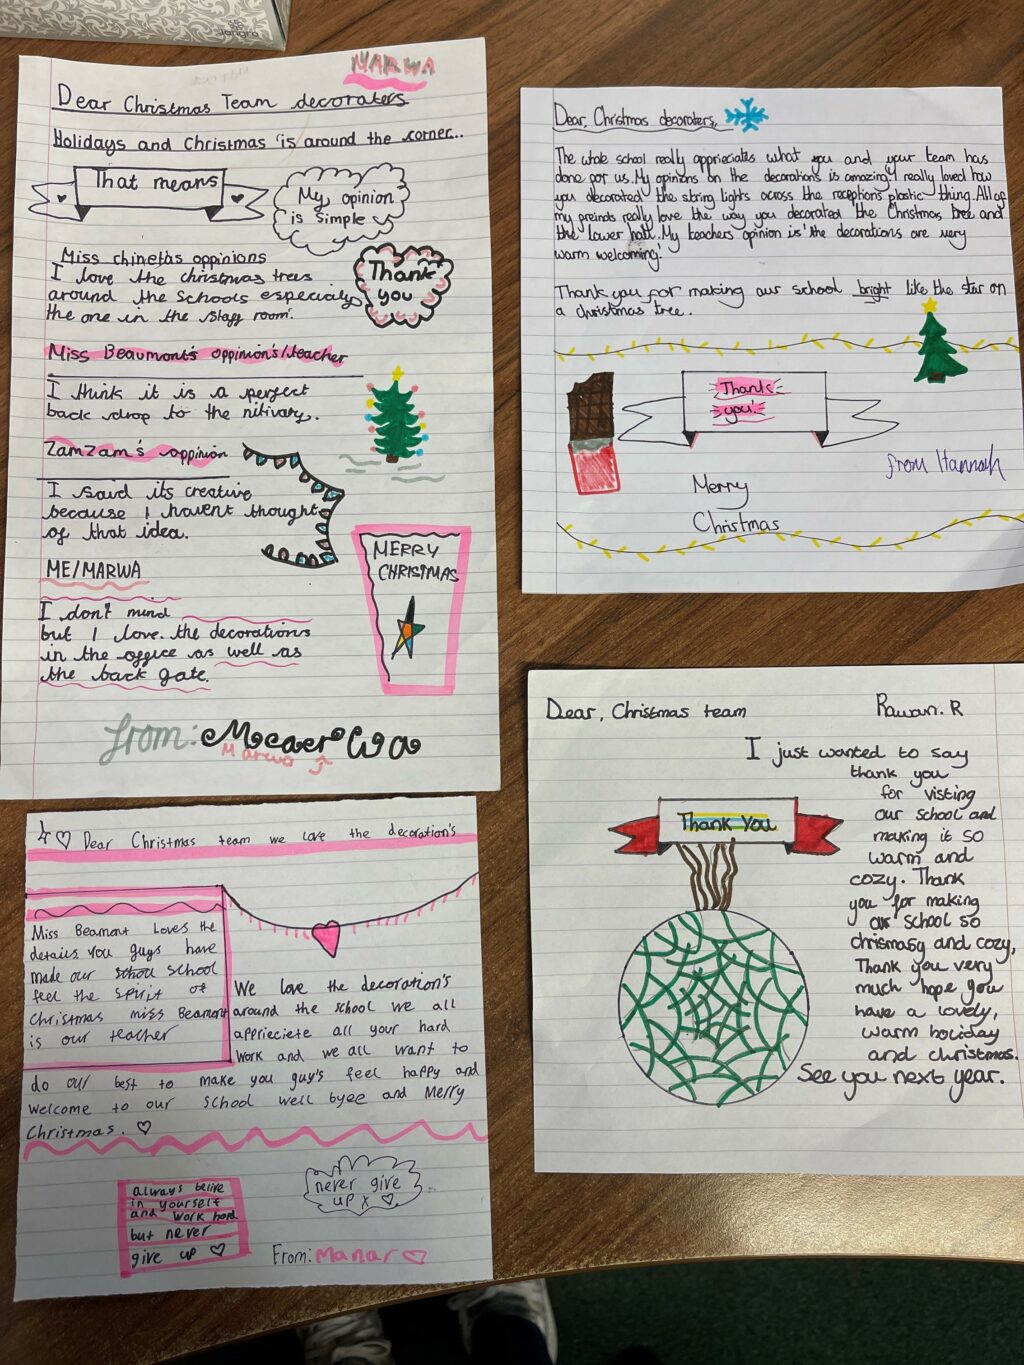 Jangro
MARWA
Dear Christmas Team decoraters
Holidays and Christmas is around the corner...
That means
My opinion
is simple
Miss chineta's oppinions
I love the christmas trees
around the schools especialy
the one in the staff room.
Thank
you
Miss Beaumont's oppinion's/teacher
I think it is a perfect
back drop to the nitivary.
ZamZam's oppinion
I said its creative
because I havent thought
of that idea.
ME/MARWA
I don't mind
but I love the decorations
in the office as well as
the back gate.
MERRY
CHRISTMAS
from:
Marwa
Dear, Christmas decoraters,
The whole school really appreciates what you and your team has
done for us. My opinions on the decorations is amazing. I really loved how
you decorated the string lights across the receptions plastic thing. All of
my freinds really love the way you decorated the Christmas tree and
the lower hall. My teachers opinion is 'the decorations are very
warm welcoming.'
Thank you for making our school bright like the star on
a christmas tree.
Thank
you!
from Hannah
Merry
Christmas
♡ Dear Christmas team we love the decoration's
Miss Beamont Loves the
details you guys have
made our school
feel the spirit of
Christmas miss Beamont
is our teacher
We love the decoration's
around the school we all
appricicte all your hard
work and we all want to
do our best to make you guy's feel happy and
welcome to our school well byee and Merry
Christmas. ♡
always belive
in yourself
and work hard
but never
give up ♡
never give
up x ♡
From: Manar ♡
Dear, Christmas team
Rawan. R
I just wanted to say
thank you
for visting
our school and
making it so
warm and
cozy. Thank
you for making
our school so
chrismasy and cozy,
Thank you very
much hope you
have a lovely,
warm holiday
and christmas.
See you next year.
Thank You